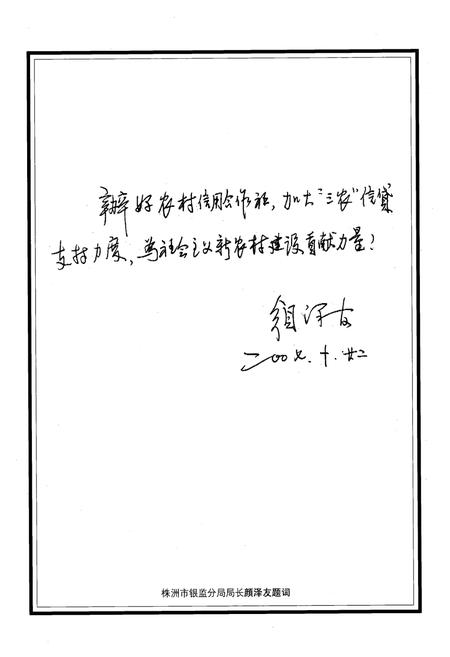 辦好农村信用合作社，加大“三农”信贷
支持力度，为社会主义新农村建设贡献力量！
颜泽友
二00七.十.廿二
株洲市银监分局局长颜泽友题词